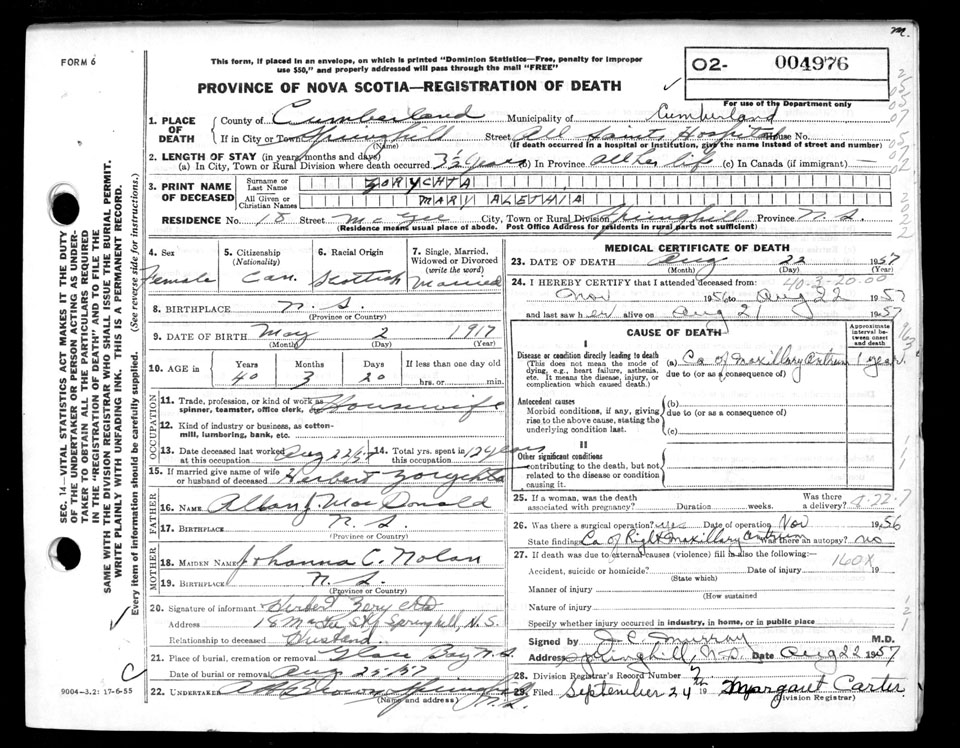 FORM 6
This form, if placed in an envelope, on which is printed "Dominion Statistics—Free, penalty for improper
use $50," and properly addressed will pass through the mail "FREE"
O2- 004976
For use of the Department only
PROVINCE OF NOVA SCOTIA—REGISTRATION OF DEATH
1. PLACE OF DEATH
County of Cumberland Municipality of Cumberland
If in City or Town Springhill Street All Saints Hospital House No.
(Name) (If death occurred in a hospital or institution, give the name instead of street and number)
2. LENGTH OF STAY (in years, months and days)
(a) In City, Town or Rural Division where death occurred 3½ years (b) in Province all her life (c) In Canada (if immigrant) —
3. PRINT NAME OF DECEASED
Surname or Last Name ZORYCHTA
All Given or Christian Names MARY ALETHIA
RESIDENCE No. 18 Street McGee City, Town or Rural Division Springhill Province N.S.
(Residence means usual place of abode. Post Office Address for residents in rural parts not sufficient)
4. Sex Female
5. Citizenship (Nationality) Can.
6. Racial Origin Scottish
7. Single, Married, Widowed or Divorced (write the word) Married
8. BIRTHPLACE N.S.
(Province or Country)
9. DATE OF BIRTH May 2 1917
(Month) (Day) (Year)
10. AGE Years 40 Months 3 Days 20 If less than one day hrs. or min.
OCCUPATION
11. Trade, profession, or kind of work as spinner, teamster, office clerk, Housewife
12. Kind of industry or business, as cotton-mill, lumbering, bank, etc.
13. Date deceased last worked at this occupation Aug 22/57
14. Total yrs. spent in this occupation 12 years
15. If married give name of wife or husband of deceased Herbert Zorychta
FATHER
16. NAME Allan J. MacDonald
17. BIRTHPLACE N.S.
(Province or Country)
MOTHER
18. MAIDEN NAME Johanna C. Nolan
19. BIRTHPLACE N.S.
(Province or Country)
20. Signature of informant Herbert Zorychta
Address 18 McGee St, Springhill, N.S.
Relationship to deceased Husband.
21. Place of burial, cremation or removal Glace Bay N.S.
Date of burial or removal Aug 25-57
22. UNDERTAKER A. Brown Springhill N.S.
(Name and address)
MEDICAL CERTIFICATE OF DEATH
23. DATE OF DEATH Aug 22 1957
(Month) (Day) (Year)
40-3-20.00
24. I HEREBY CERTIFY that I attended deceased from:
Nov 1956 to Aug 22 1957
and last saw her alive on Aug 21 1957
CAUSE OF DEATH
Approximate interval between onset and death
I
Disease or condition directly leading to death
(This does not mean the mode of dying, e.g., heart failure, asthenia, etc. It means the disease, injury, or complication which caused death.)
(a) Ca of maxillary antrum 1 year.
due to (or as a consequence of)
Antecedent causes
Morbid conditions, if any, giving rise to the above cause, stating the underlying condition last.
(b)
due to (or as a consequence of)
(c)
II
Other significant conditions
contributing to the death, but not related to the disease or condition causing it.
25. If a woman, was the death associated with pregnancy? Duration weeks. Was there a delivery?
26. Was there a surgical operation? yes Date of operation Nov 1956
State findings Ca of Right maxillary antrum Was there an autopsy? no
27. If death was due to external causes (violence) fill in also the following:—
160X
Accident, suicide or homicide? 19
(State which)
Manner of injury
(How sustained)
Nature of injury
Specify whether injury occurred in industry, in home, or in public place
Signed by J. C. Murray M.D.
Address Springhill, N.S. Date Aug 22 1957
28. Division Registrar's Record Number
29. Filed September 24th 19 Margaret Carter
(Division Registrar)
SEC. 14—VITAL STATISTICS ACT MAKES IT THE DUTY
OF THE UNDERTAKER OR PERSON ACTING AS UNDER-
TAKER TO OBTAIN ALL THE PARTICULARS REQUIRED
IN THE "REGISTRATION OF DEATH" AND TO FILE THE
SAME WITH THE DIVISION REGISTRAR WHO SHALL ISSUE THE BURIAL PERMIT.
WRITE PLAINLY WITH UNFADING INK. THIS IS A PERMANENT RECORD.
Every item of information should be carefully supplied. (See reverse side for instructions.)
9004—3.2: 17-6-55